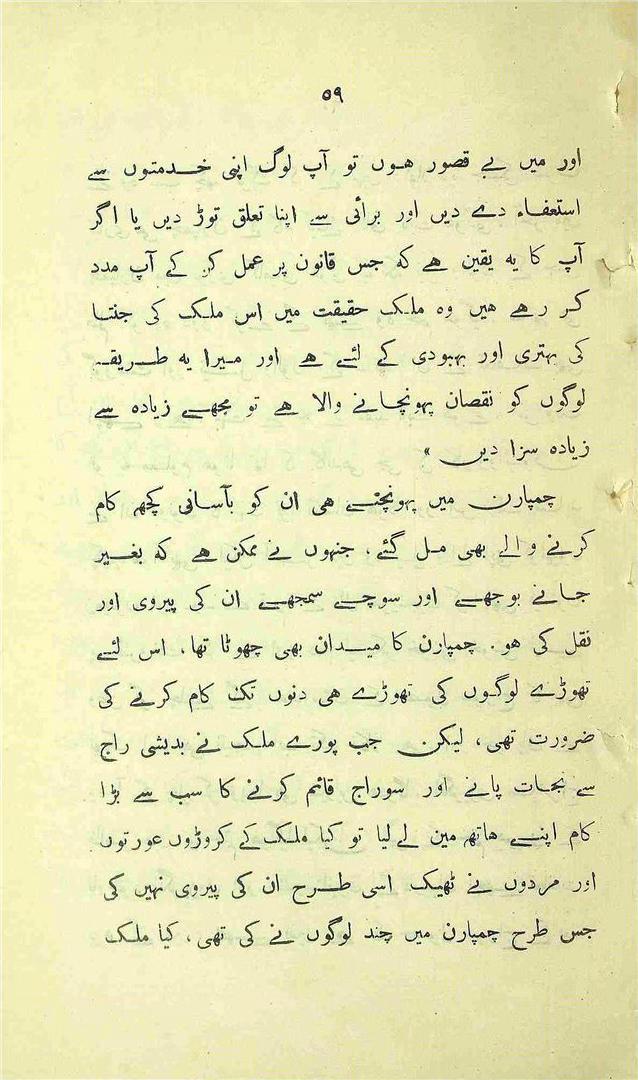 ۵۹
اور میں بے قصور ہوں تو آپ لوگ اپنی خدمتوں سے
استعفاء دے دیں اور برائی سے اپنا تعلق توڑ دیں یا اگر
آپ کا یہ یقین ہے کہ جس قانون پر عمل کر کے آپ مدد
کر رہے ہیں وہ ملک حقیقت میں اس ملک کی جنتا
کی بہتری اور بہبودی کے لئے ہے اور میرا یہ طریقہ
لوگوں کو نقصان پہونچانے والا ہے تو مجھے زیادہ سے
زیادہ سزا دیں »
چمپارن میں پہونچتے ہی ان کو بآسانی کچھ کام
کرنے والے بھی مل گئے، جنہوں نے ممکن ہے کہ بغیر
جانے بوجھے اور سوچے سمجھے ان کی پیروی اور
نقل کی ہو۔ چمپارن کا میدان بھی چھوٹا تھا، اس لئے
تھوڑے لوگوں کی تھوڑے ہی دنوں تک کام کرنے کی
ضرورت تھی، لیکن جب پورے ملک نے بدیشی راج
سے نجات پانے اور سوراج قائم کرنے کا سب سے بڑا
کام اپنے ہاتھ مین لے لیا تو کیا ملک کے کروڑوں عورتوں
اور مردوں نے ٹھیک اسی طرح ان کی پیروی نہیں کی
جس طرح چمپارن میں چند لوگوں نے کی تھی، کیا ملک